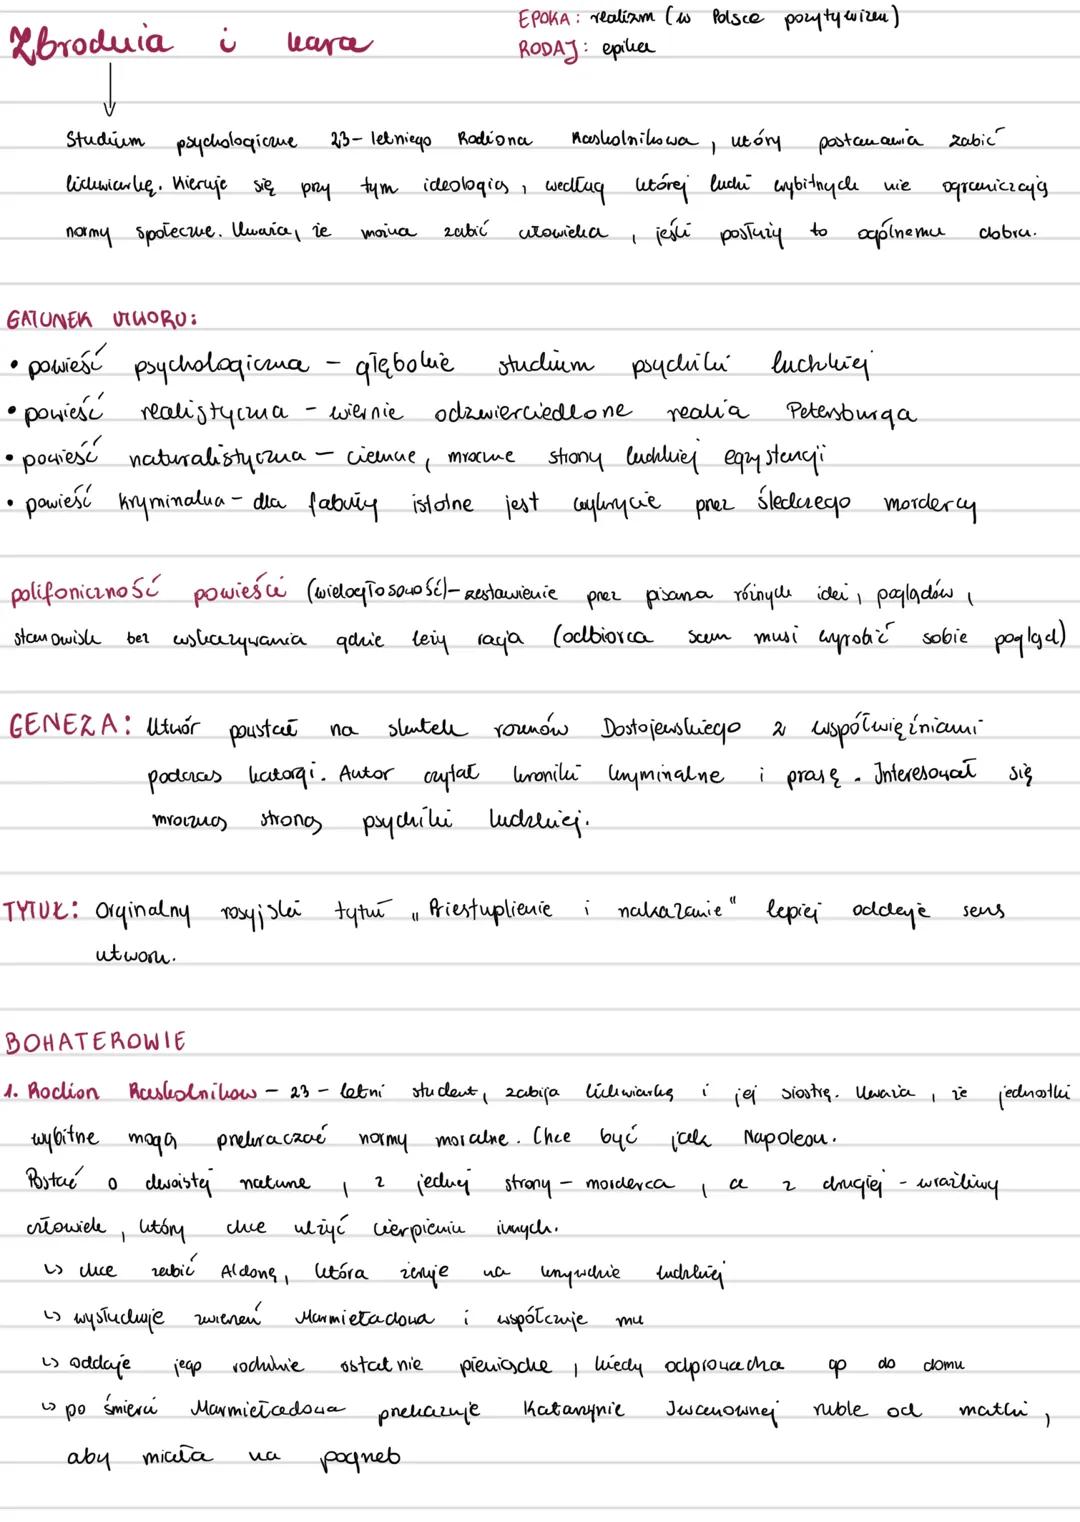 Zbrodnia i kara
EPOKA: realizm (w Polsce pozytywizm)
RODAJ: epika
Studium psychologiczne 23-letniego Rodiona Raskolnikowa, który postanawia zabić
lichwiarkę. Kieruje się przy tym ideologią, według której ludzi wybitnych nie ograniczają
normy społeczne. Uważa, że można zabić człowieka, jeśli posłuży to ogólnemu dobru.
GATUNEK UTWORU:
• powieść psychologiczna - głębokie studium psychiki ludzkiej
• powieść realistyczna - wiernie odzwierciedlone realia Petersburga
• powieść naturalistyczna - ciemne, mroczne strony ludzkiej egzystencji
• powieść kryminalna - dla fabuły istotne jest wykrycie przez śledczego mordercy
polifoniczność powieści (wielogłosowość) - zestawienie przez pisarza różnych idei, poglądów,
stanowisk bez wskazywania gdzie leży racja (odbiorca sam musi wyrobić sobie pogląd)
GENEZA: Utwór powstał na skutek rozmów Dostojewskiego z współwięźniami
podczas katorgi. Autor czytał kroniki kryminalne i prasę. Interesował się
mroczną stroną psychiki ludzkiej.
TYTUŁ: Orginalny rosyjski tytuł „Priestuplienie i nakazanie" lepiej oddaje sens
utworu.
BOHATEROWIE
1. Rodion Raskolnikow - 23 - letni student, zabija lichwiarkę i jej siostrę. Uważa, że jednostki
wybitne mogą przekraczać normy moralne. Chce być jak Napoleon.
Postać o dwoistej naturze, z jednej strony - morderca, a z drugiej - wrażliwy
człowiek, który chce ulżyć cierpieniu innych.
↳ chce zabić Aldonę, która żeruje na krzywdzie ludzkiej
↳ wysłuchuje zwierzeń Marmieładowa i współczuje mu
↳ oddaje jego rodzinie ostatnie pieniądze, kiedy odprowadza go do domu
↳ po śmierci Marmieładowa przekazuje Katarzynie Iwanownej ruble od matki,
aby miała na pogrzeb